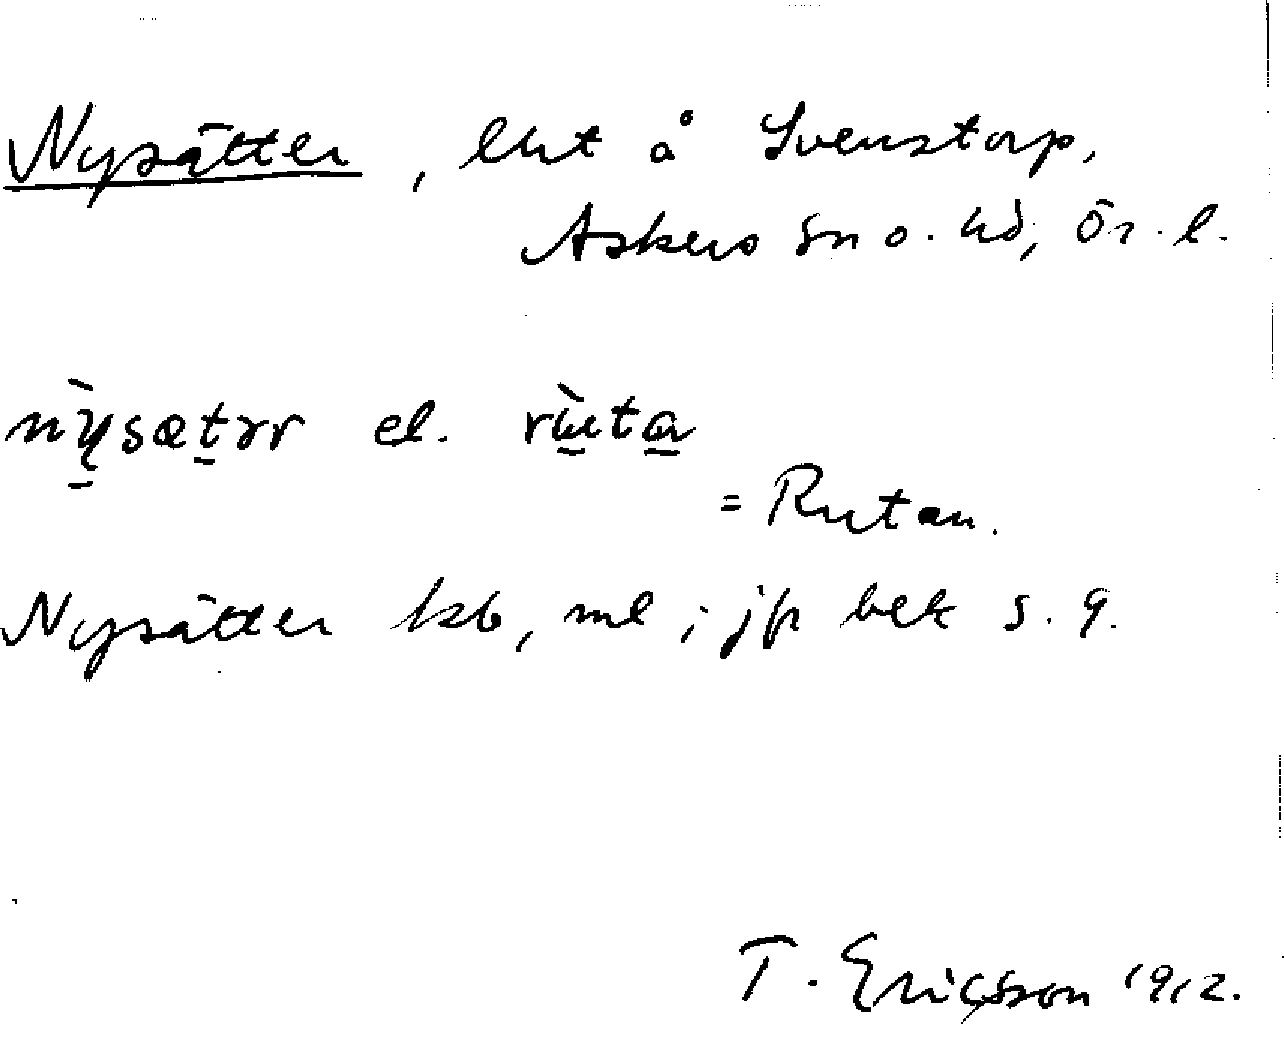 Nysätter, lht å Svenstorp,
Askers sn o. hd, Ör. l.
nỳsætər el. rùta
= Rutan.
Nysätter kb, ml; jfr bek s. 9.
T. Ericsson 1912.